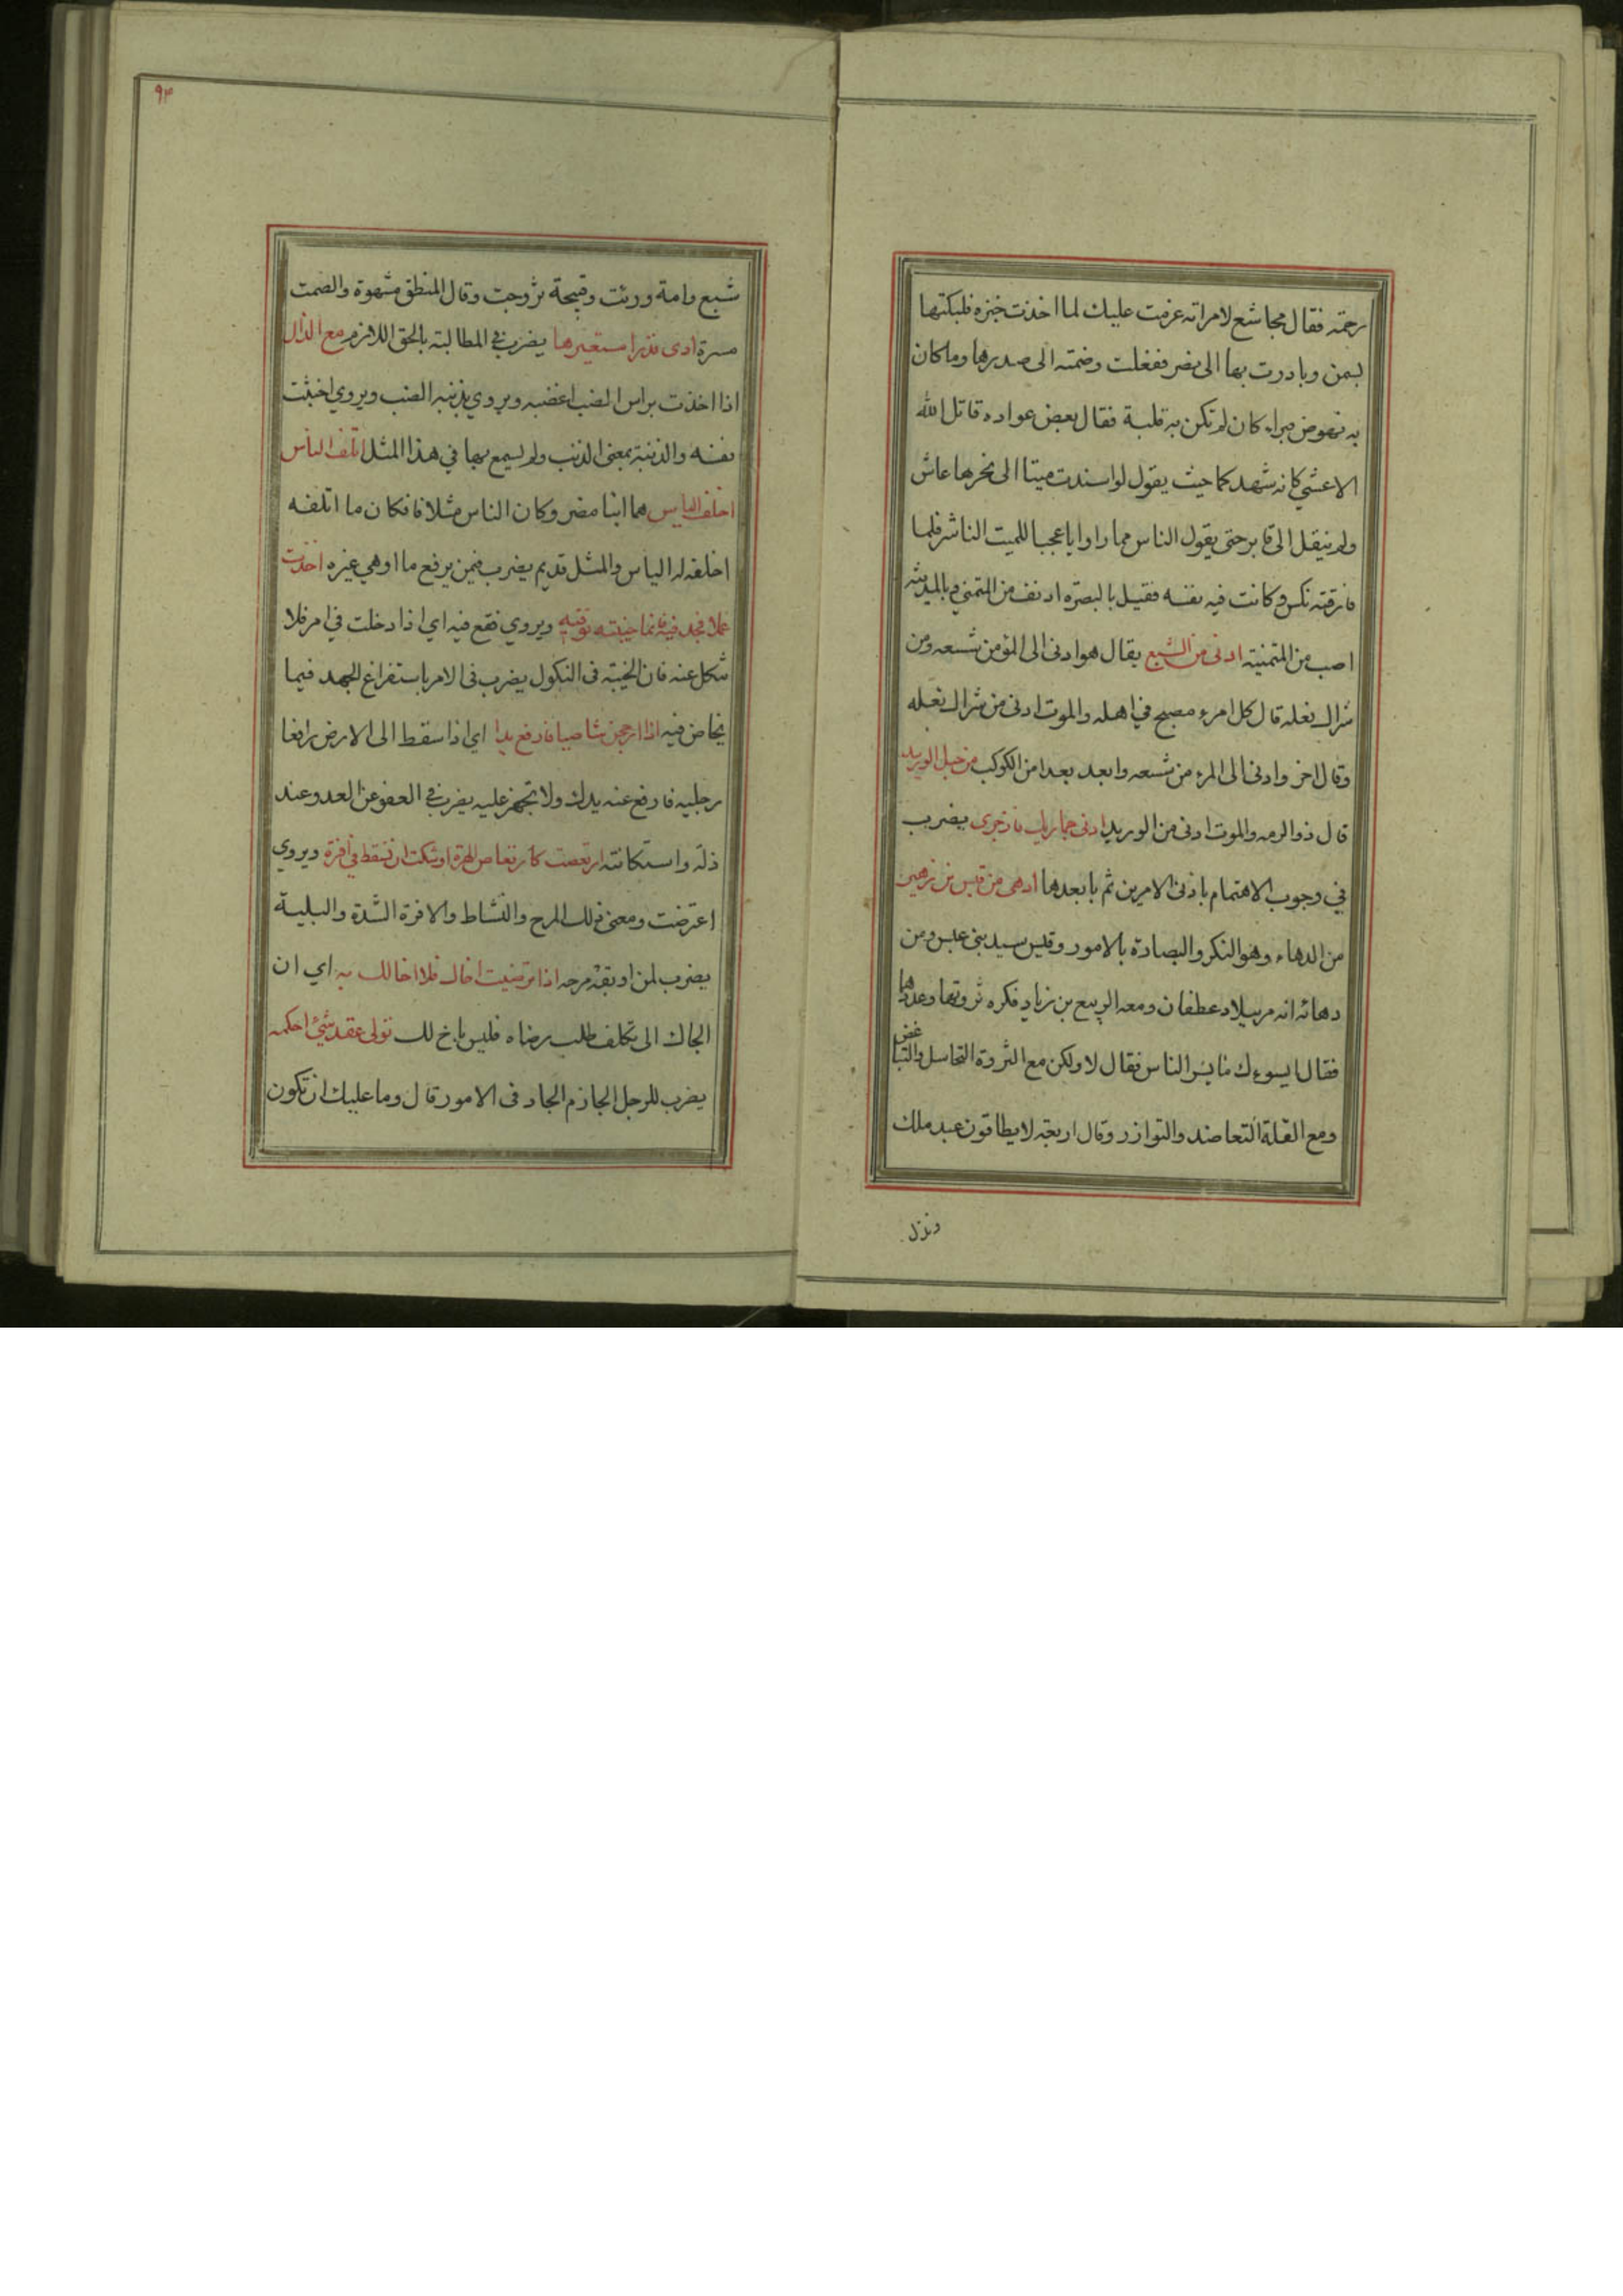 رحمته فقال مجاشع لامراته عزمت عليك لما اخذت خبزه فلبكتها
بسمن وبادرت بها الى نضر ففعلت وضمته الى صدرها وماكان
به نهوض فبراء كان لم تكن به قلبة فقال بعض عواده قاتل الله
الاعشي كانه شهدكما حيث يقول لو اسندت ميتا الى نحرها عاش
ولم ينقل الى قابر حتى يقول الناس مما راوا ياعجبا للميت الناشر فلما
فارقته نكس وكانت فيه نفسه فقيل بالبصره ادنف من المتمني وبالمدينة
اصب من المتمنية ادنى من الشسع يقال هو ادنى الى المؤمن شسعه ومن
شراك نعله قال كل امرء مصبح في اهله والموت ادنى من شراك نعله
وقال اخر وادنى الى المرء من شسعه وابعد بعدا من الكوكب من حبل الوريد
قال ذو الرمه والموت ادنى من الوريد ادنى حماريك فازجرى يضرب
في وجوب الاهتمام بادنى الامرين ثم بابعدها ادهى من قيس بن زهير
من الدهاء وهو النكر والبصارة بالامور وقيس سيد بني عبس ومن
دهائه انه مر ببلاد عطفان ومعه الربيع بن زياد فكره ثروتها وعددها
فقال ايسوءك مايسر الناس فقال لا ولكن مع الثروة التحاسل والتباغض
ومع القلة التعاضد والتوازر وقال اربعة لايطاقون عبد ملك
ونذل
٩٣
شبع وامة ورثت وقبيحة تزوجت وقال المنطق مشهوة والصمت
مسرة ادى قدرا مستعيرها يضرب في المطالبته بالحق اللازم مع الذال
اذا اخذت براس الضب اغضبه ويروي بذنبة الضب ويروي اخبثت
نفسه والذنبة بمعنى الذنب ولم يسمع بها في هذا المثل اتلف الناس
اخلف الياس هما ابنا مضر وكان الناس متلافا فكان ما اتلفه
اخلفه له الياس والمثل قديم يضرب فيمن يرفع ما اوهي غيره اخذت
عملا فجد فيه فانما خيبته توقيه ويروي فقع فيه اي اذا دخلت في امر فلا
تنكل عنه فان الخيبة فى النكول يضرب فى الامر باستفراغ الجهد فيما
يخاض فيه اذا ارجحن شاصيا فارفع يدا اي اذا سقط الى الارض رافعا
رجليه فارفع عنه يدك ولا تجهز عليه يضرب في العفو عن العدو عند
ذله واستكانته ارتعصت كارتعاص الهرة اوشكت ان تسقط في افرة ويروي
اعترضت ومعنى ذلك المرح والنشاط والافرة الشدة والبلية
يضرب لمن اوبقه مرحه اذا ترضيت اخاك فلا اخا لك به اي ان
الجاك الى تكلف طلب رضاه فليس باخ لك تولى عقد شئ احكمه
يضرب للرجل الجازم الجاد فى الامور قال وما عليك ان تكون